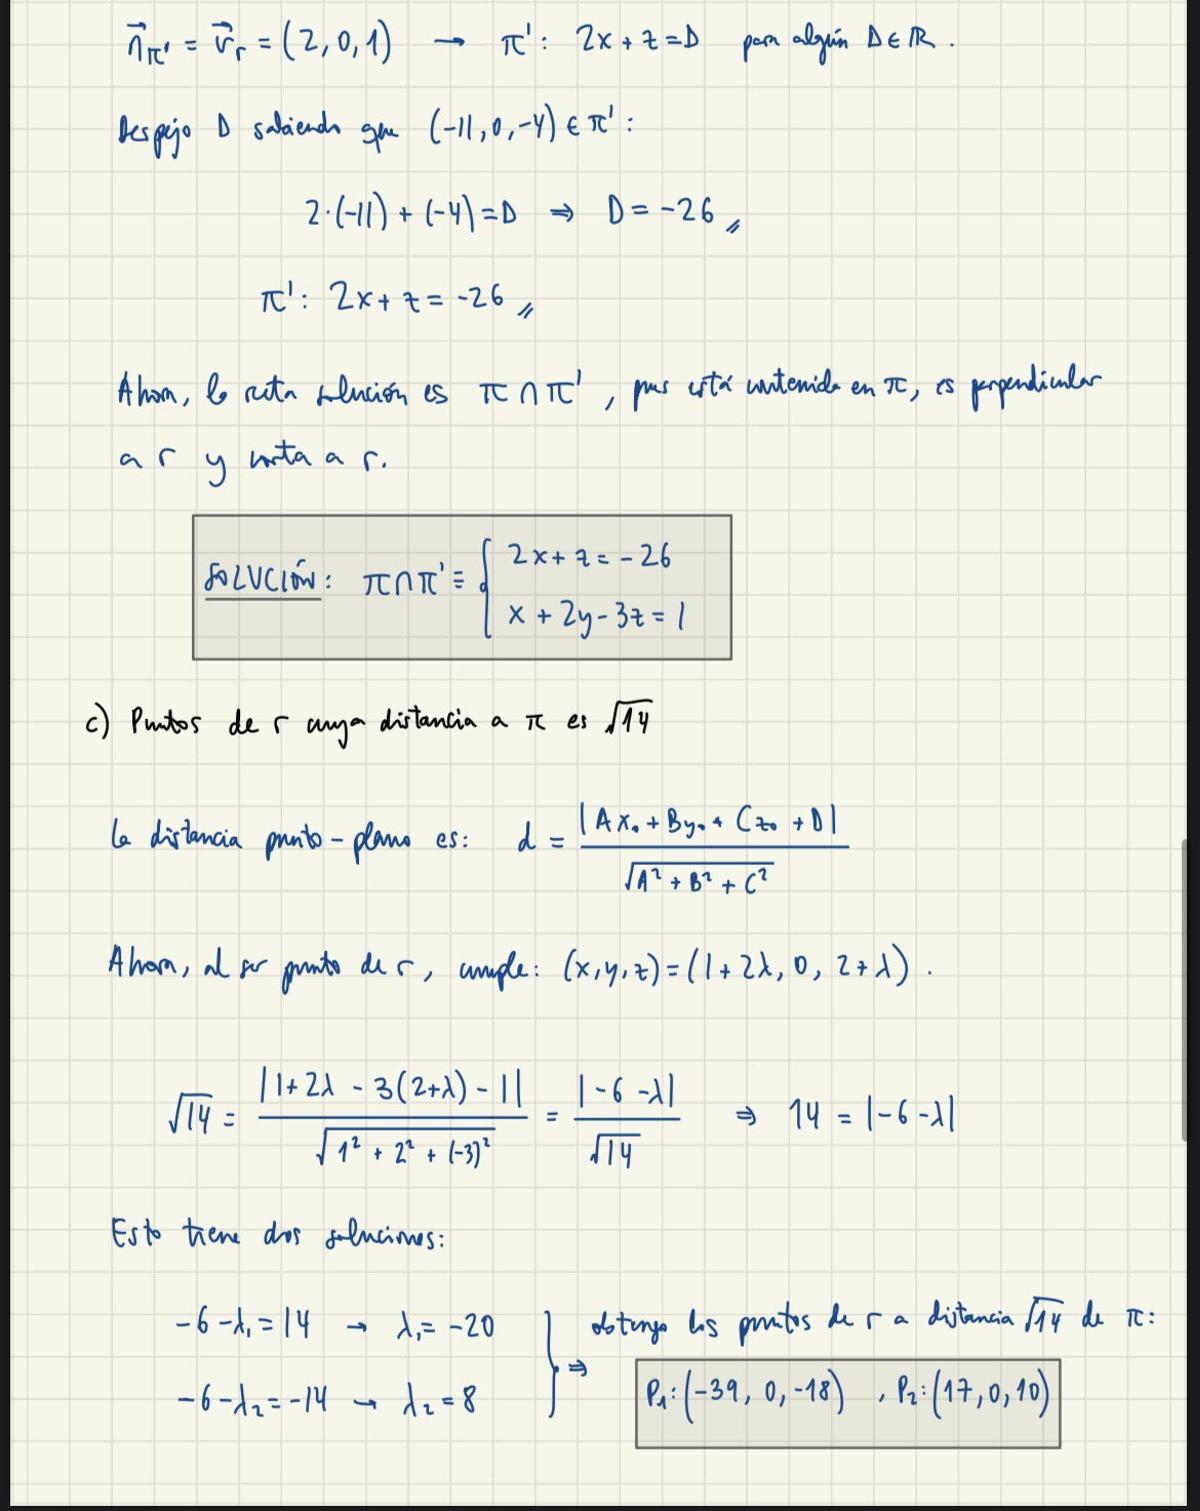 n⃗_π' = v⃗_r = (2, 0, 1) → π': 2x + z = D para algún D ∈ ℝ.
Despejo D sabiendo que (-11, 0, -4) ∈ π':
2·(-11) + (-4) = D ⇒ D = -26 //
π': 2x + z = -26 //
Ahora, la recta solución es π ∩ π', pues está contenida en π, es perpendicular
a r y corta a r.
SOLUCIÓN: π∩π' ≡ { 2x + z = -26
x + 2y - 3z = 1
c) Puntos de r cuya distancia a π es √14
La distancia punto-plano es: d = |Ax₀ + By₀ + Cz₀ + D| / √(A² + B² + C²)
Ahora, al ser punto de r, cumple: (x, y, z) = (1 + 2λ, 0, 2 + λ).
√14 = |1 + 2λ - 3(2+λ) - 1| / √(1² + 2² + (-3)²) = |-6 - λ| / √14 ⇒ 14 = |-6 - λ|
Esto tiene dos soluciones:
-6 - λ₁ = 14 → λ₁ = -20
-6 - λ₂ = -14 → λ₂ = 8
} ⇒ obtengo los puntos de r a distancia √14 de π:
P₁: (-39, 0, -18) , P₂: (17, 0, 10)